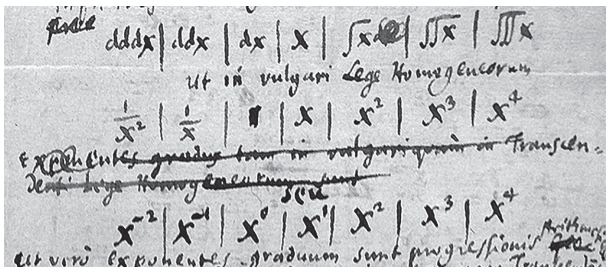 dddx | ddx | dx | x | ∫x | ∬x | ∭x
ut in vulgari Lege Homogeneorum
1/x² | 1/x | 1 | x | x² | x³ | x⁴
Exponentes gradus tam in vulgari quam in Transcen-
Lege Homogeneorum sunt
seu
x⁻² | x⁻¹ | x⁰ | x¹ | x² | x³ | x⁴
ut vero exponentes graduum sunt progressionis